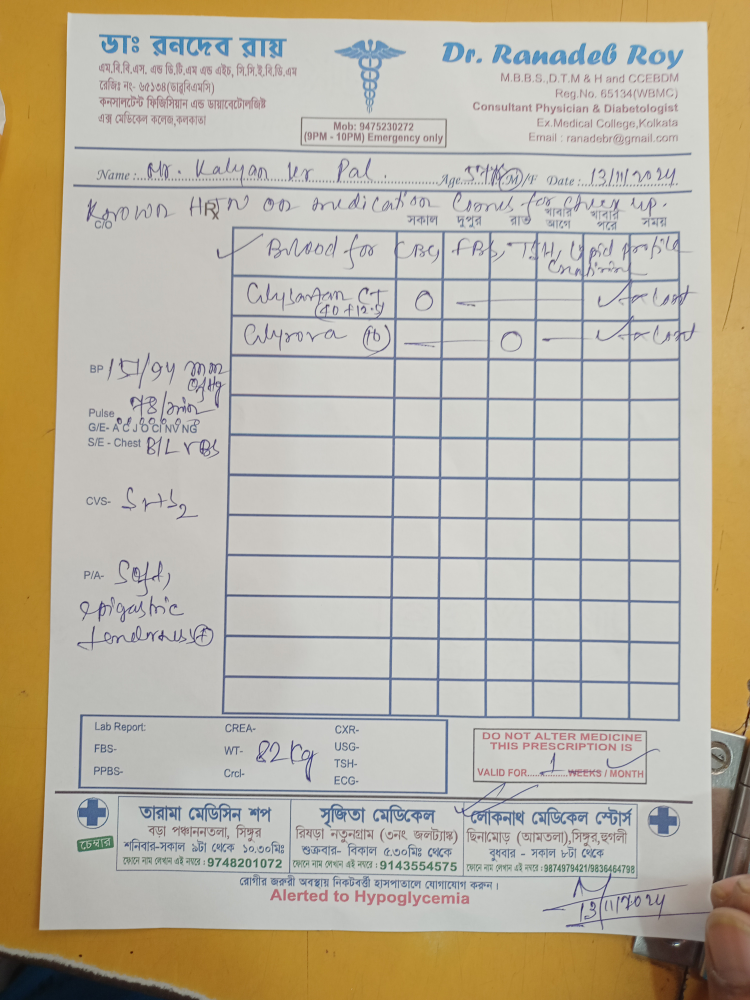 ডাঃ রনদেব রায়
এম.বি.বি.এস, এন্ড ডি.টি.এম এন্ড এইচ, সি.সি.ই.বি.ডি.এম
রেজিঃ নং- ৬৫১৩৪(ডাব্লুবিএমসি)
কনসালটেন্ট ফিজিসিয়ান এন্ড ডায়াবেটোলজিষ্ট
এক্স মেডিকেল কলেজ,কলকাতা
Mob: 9475230272
(9PM - 10PM) Emergency only
Dr. Ranadeb Roy
M.B.B.S.,D.T.M & H and CCEBDM
Reg.No. 65134(WBMC)
Consultant Physician & Diabetologist
Ex.Medical College,Kolkata
Email : ranadebr@gmail.com
Name :.. Mr. Kalyan Kr Pal. Age (M)/F Date : 13/11/2024
Known HTN on medication comes for check up.
C/O Rx সকাল দুপুর রাত খাবার আগে খাবার পরে সময়
Blood for CBC, FBS, TSH, Lipid profile
Creatinine
Gilysartan CT
(40+12.5)
(10)
BP mm of Hg
Pulse 78/min
G/E- A C J O C I N V N G
S/E - Chest B/L VBS
CVS- S1+S2
P/A- Soft,
epigastric
tenderness (+)
Lab Report:
FBS-
PPBS-
CREA-
WT- 82 Kg
Crcl-
CXR-
USG-
TSH-
ECG-
DO NOT ALTER MEDICINE
THIS PRESCRIPTION IS
VALID FOR 1 WEEKS / MONTH
চেম্বার
তারামা মেডিসিন শপ
বড়া পঞ্চাননতলা, সিঙ্গুর
শনিবার-সকাল ৯টা থেকে ১০.৩০মিঃ
ফোনে নাম লেখান এই নম্বরে : 9748201072
সৃজিতা মেডিকেল
রিষড়া নতুনগ্রাম (৩নং জলট্যাঙ্ক)
শুক্রবার- বিকাল ৫.৩০মিঃ থেকে
ফোনে নাম লেখান এই নম্বরে : 9143554575
লোকনাথ মেডিকেল স্টোর্স
ছিনামোড় (আমতলা),সিঙ্গুর,হুগলী
বুধবার - সকাল ৮টা থেকে
ফোনে নাম লেখান এই নম্বরে : 9874979421/9836464798
রোগীর জরুরী অবস্থায় নিকটবর্ত্তী হাসপাতালে যোগাযোগ করুন।
Alerted to Hypoglycemia
13/11/2024